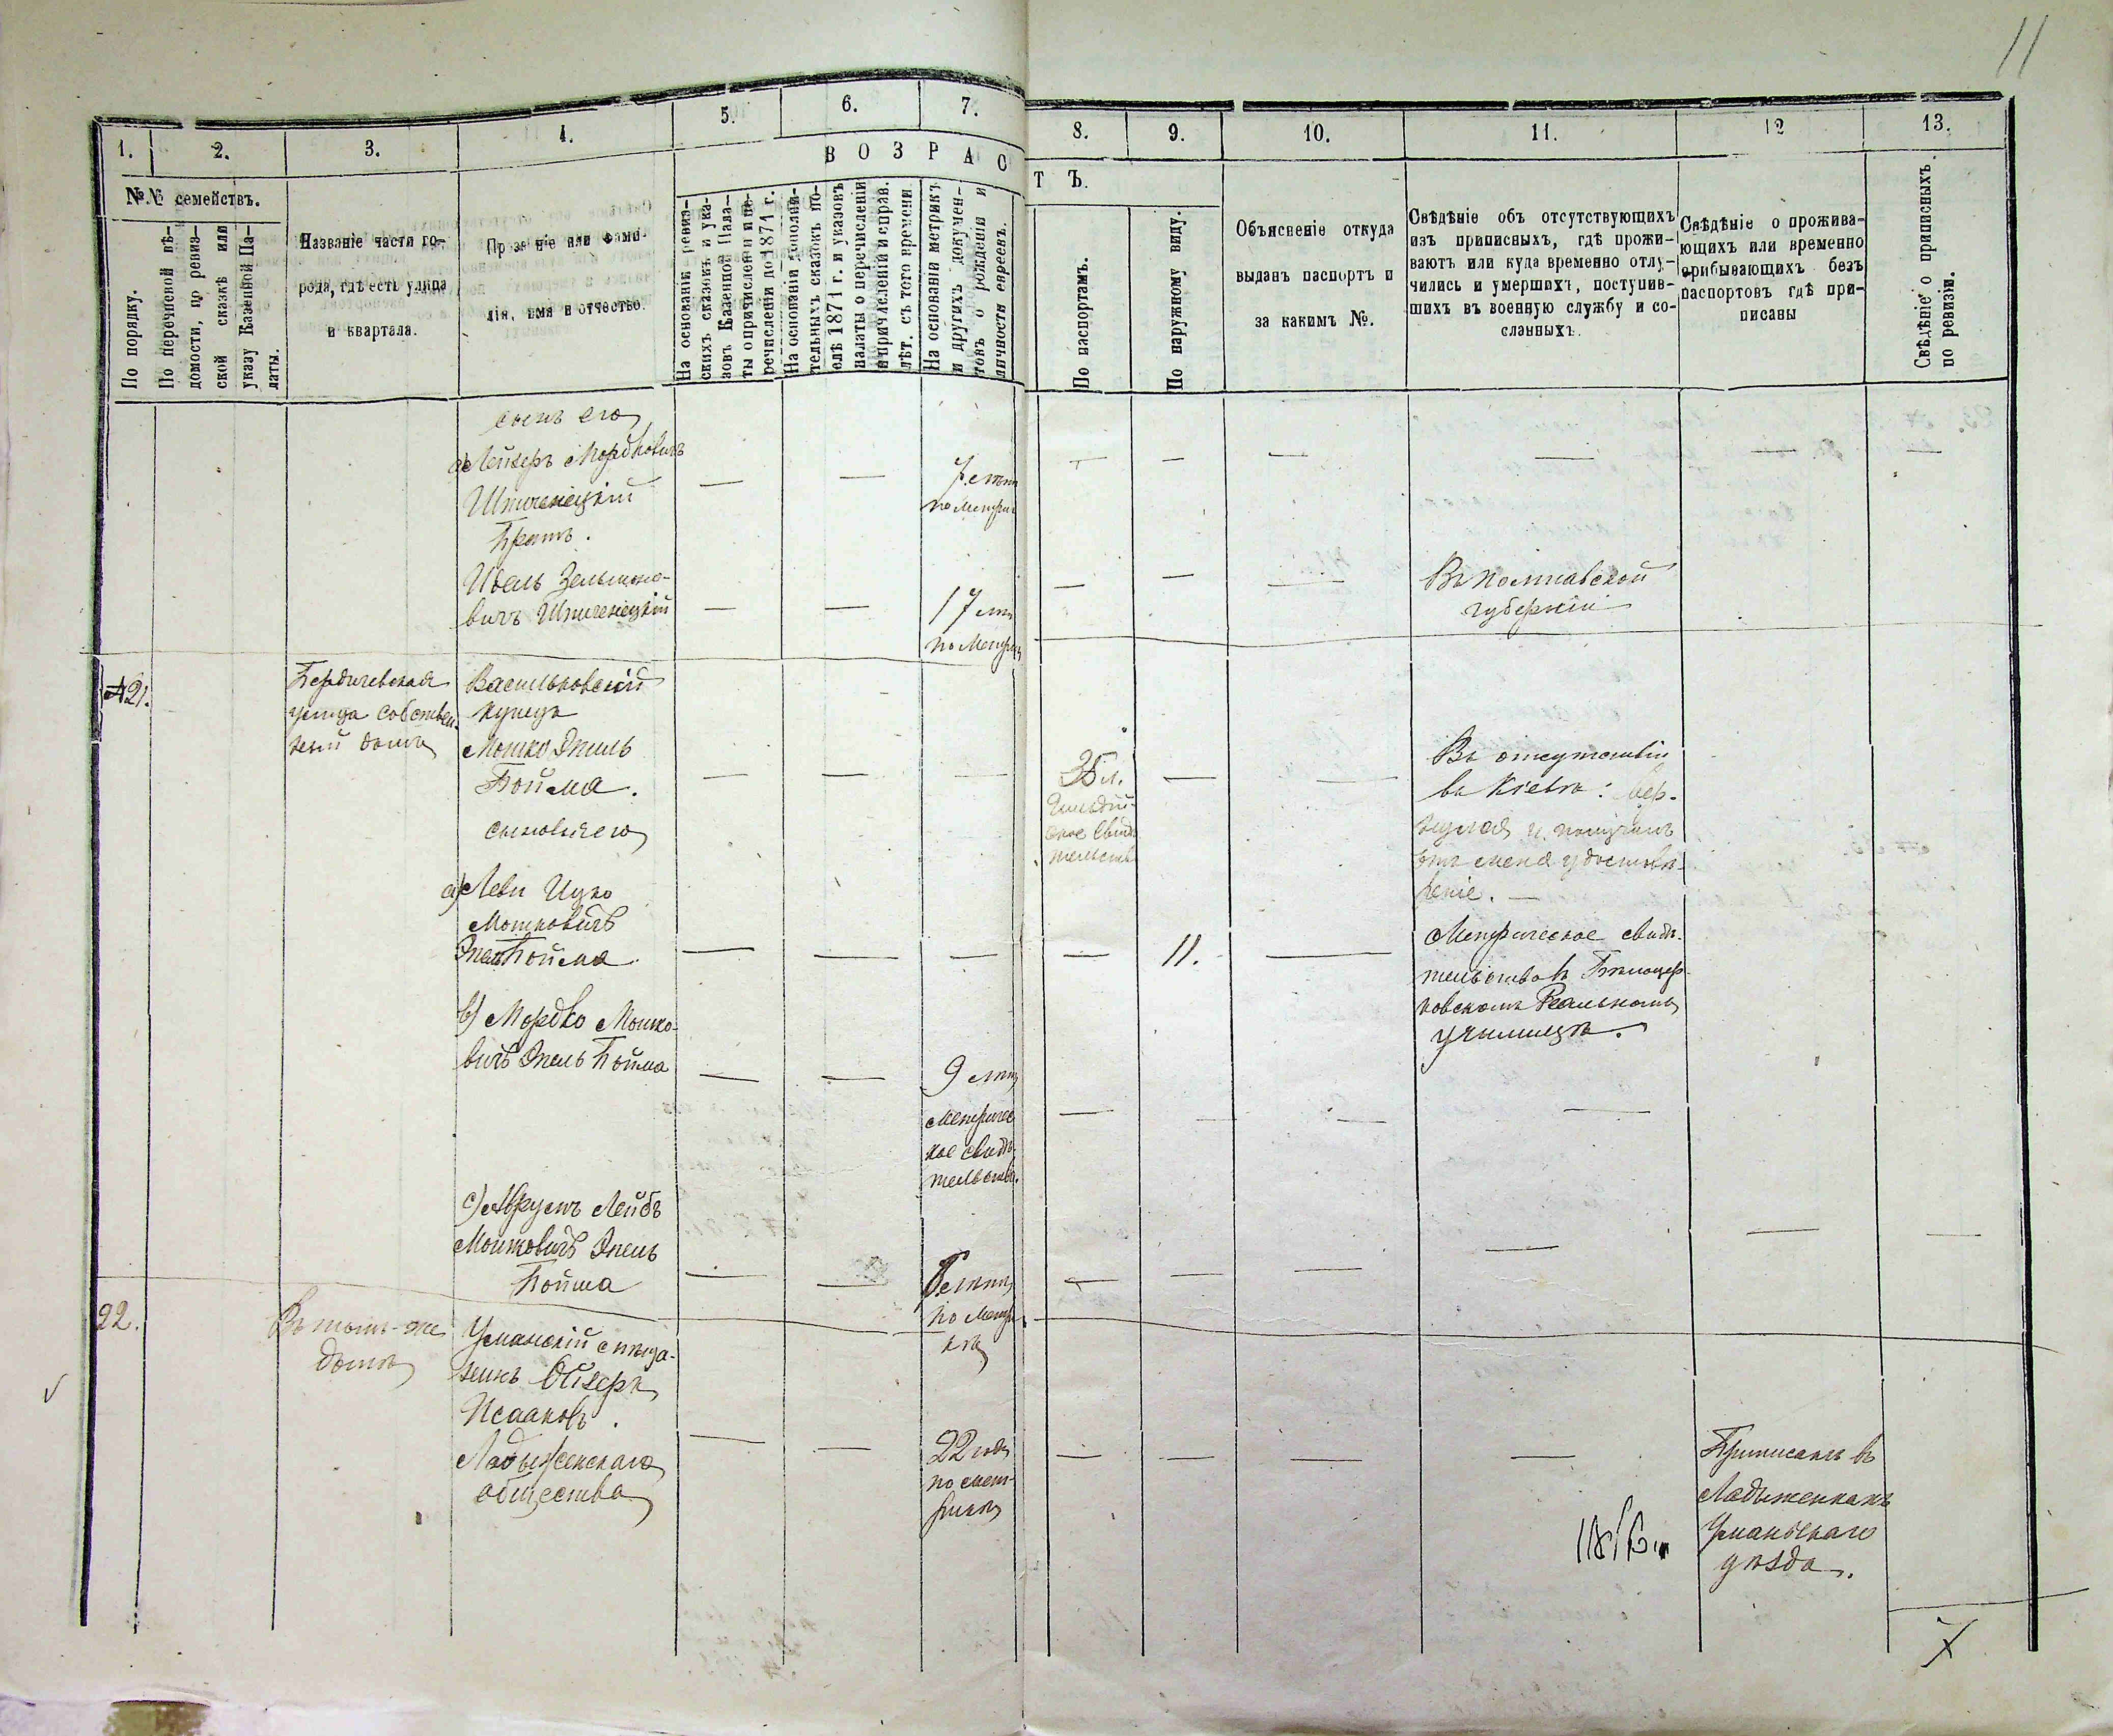 11
1.
2.
3.
4.
5.
6.
7.
8.
9.
10.
11.
12
13.
№№ семействъ.
По порядку.
По перечневой вѣ-
домости, по ревиз-
ской сказкѣ или
указу Казенной Па-
латы.
Названіе части го-
рода, гдѣ есть улица
и квартала.
Прозваніе или фами-
лія, имя и отчество.
ВОЗРАС
ТЪ.
На основаніи ревиз-
скихъ сказкъ и ука-
зовъ Казенной Пала-
ты о причисленіи и пе-
речисленіи до 1871 г.
На основаніи дополни-
тельныхъ сказокъ по-
слѣ 1871 г. и указовъ
палаты о перечисленіи
и причисленіи и справ.
лѣт. съ того времени
На основаніи метрикъ
и другихъ докумен-
товъ о рожденіи и
личности евреевъ.
По паспортамъ.
По наружному виду.
Объясненіе откуда
выданъ паспортъ и
за какимъ №.
Свѣдѣніе объ отсутствующихъ
изъ приписныхъ, гдѣ прожи-
ваютъ или куда временно отлу-
чились и умершихъ, поступив-
шихъ въ военную службу и со-
сланныхъ.
Свѣдѣніе о прожива-
ющихъ или временно
прибывающихъ безъ
паспортовъ гдѣ при-
писаны
Свѣдѣніе о приписныхъ
по ревизіи.
сынъ его
а) Лейзеръ Мордковичъ
братъ.
Зельмано-
вичъ
7 лѣтъ
по метри
17 лѣтъ
по Метри
Въ Полтавской
губерніи
№21.
Бердичевская
улица собствен-
ный домъ
Васильковскій
купецъ
Мошко Эпель
Бойма.
сыновья его
35 л.
Гильдій-
ское свидѣ
тельств
Въ отсутствіи
въ Кіевѣ: вер-
нулся и получилъ
отъ меня удостовѣ-
реніе.
а) Леви Ицко
Мошковичъ
Эпель Бойма
11.
Метрическое свидѣ-
тельство въ Бѣлоцер-
ковскомъ Реальномъ
училищѣ.
b) Мордко Мошко-
вичъ Эпель Бойма
9 лѣтъ
метричес
кое свидѣ
тельство.
c) Аврумъ Лейбъ
Мошковичъ Эпель
Бойма
6 лѣтъ
по метри
кѣ
22.
Въ томъ-же
домѣ
Уманскій мѣща-
нинъ Ойзеръ
Исааковъ.
Ладыженскаго
общества
22 года
по мет-
рикѣ
Приписанъ въ
Ладыженкахъ
Уманскаго
уѣзда.
7